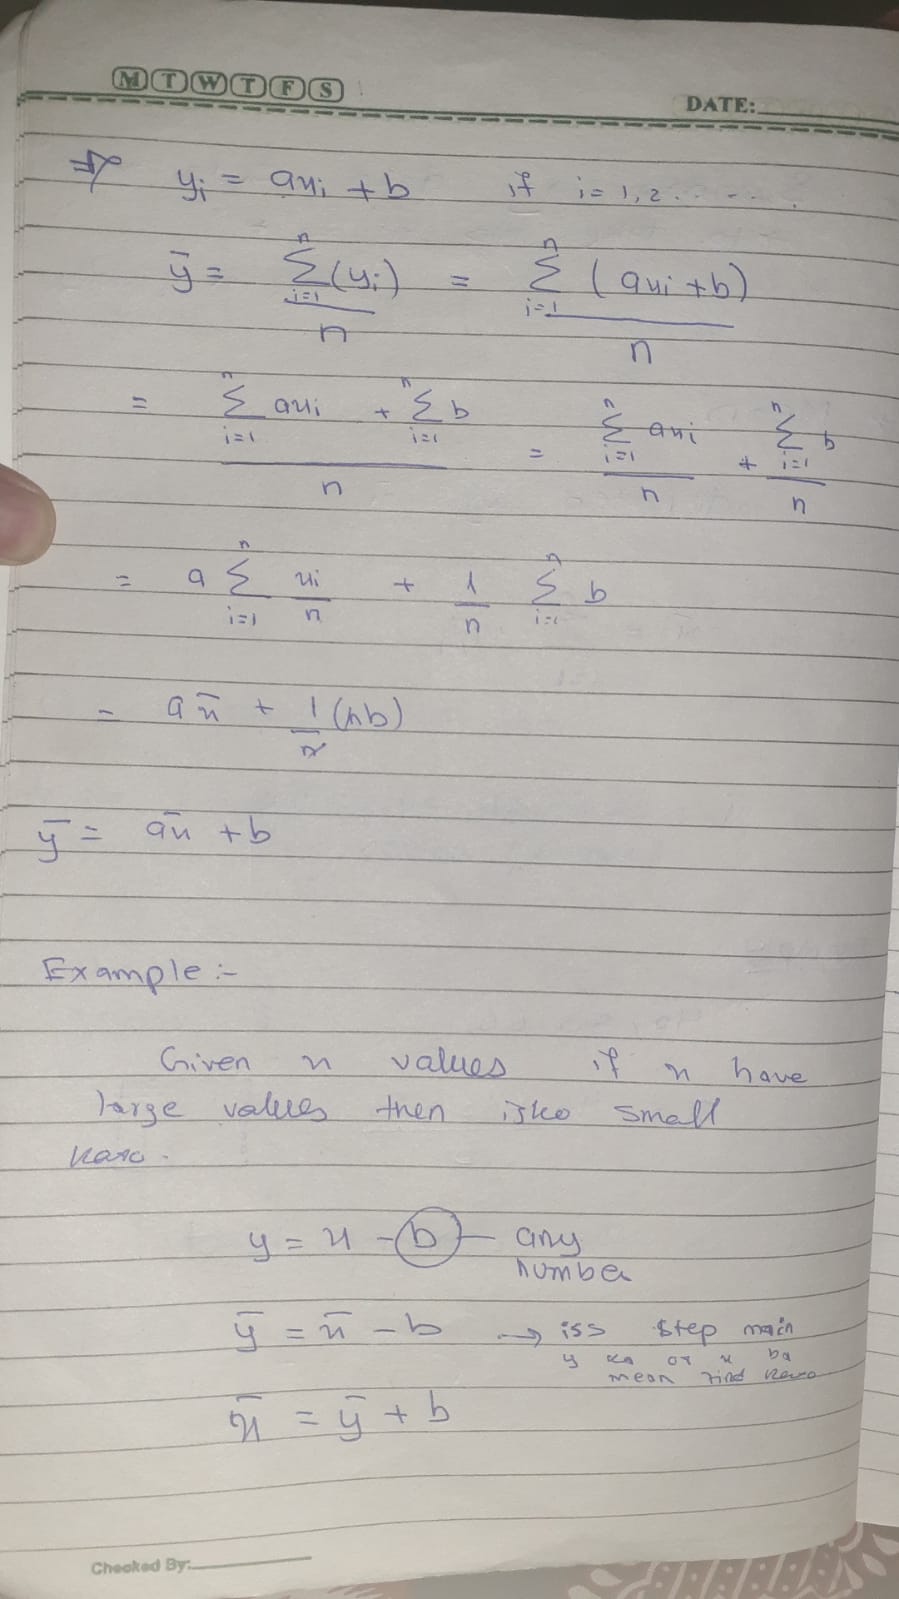 M T W T F S
DATE:
⇒ yᵢ = axᵢ + b if i = 1, 2 . . - - . .
ȳ = Σⁿᵢ₌₁ (yᵢ) / n = Σⁿᵢ₌₁ (axᵢ + b) / n
= (Σⁿᵢ₌₁ axᵢ + Σⁿᵢ₌₁ b) / n = Σⁿᵢ₌₁ axᵢ / n + Σⁿᵢ₌₁ b / n
= a Σⁿᵢ₌₁ xᵢ / n + 1/n Σⁿᵢ₌₁ b
= a x̄ + 1/n (nb)
ȳ = a x̄ + b
Example :-
Given x values if x have
large values then isko small
karo.
y = x - b - any
number
ȳ = x̄ - b → iss step main
y ka or x ka
mean find karo
x̄ = ȳ + b
Checked By: